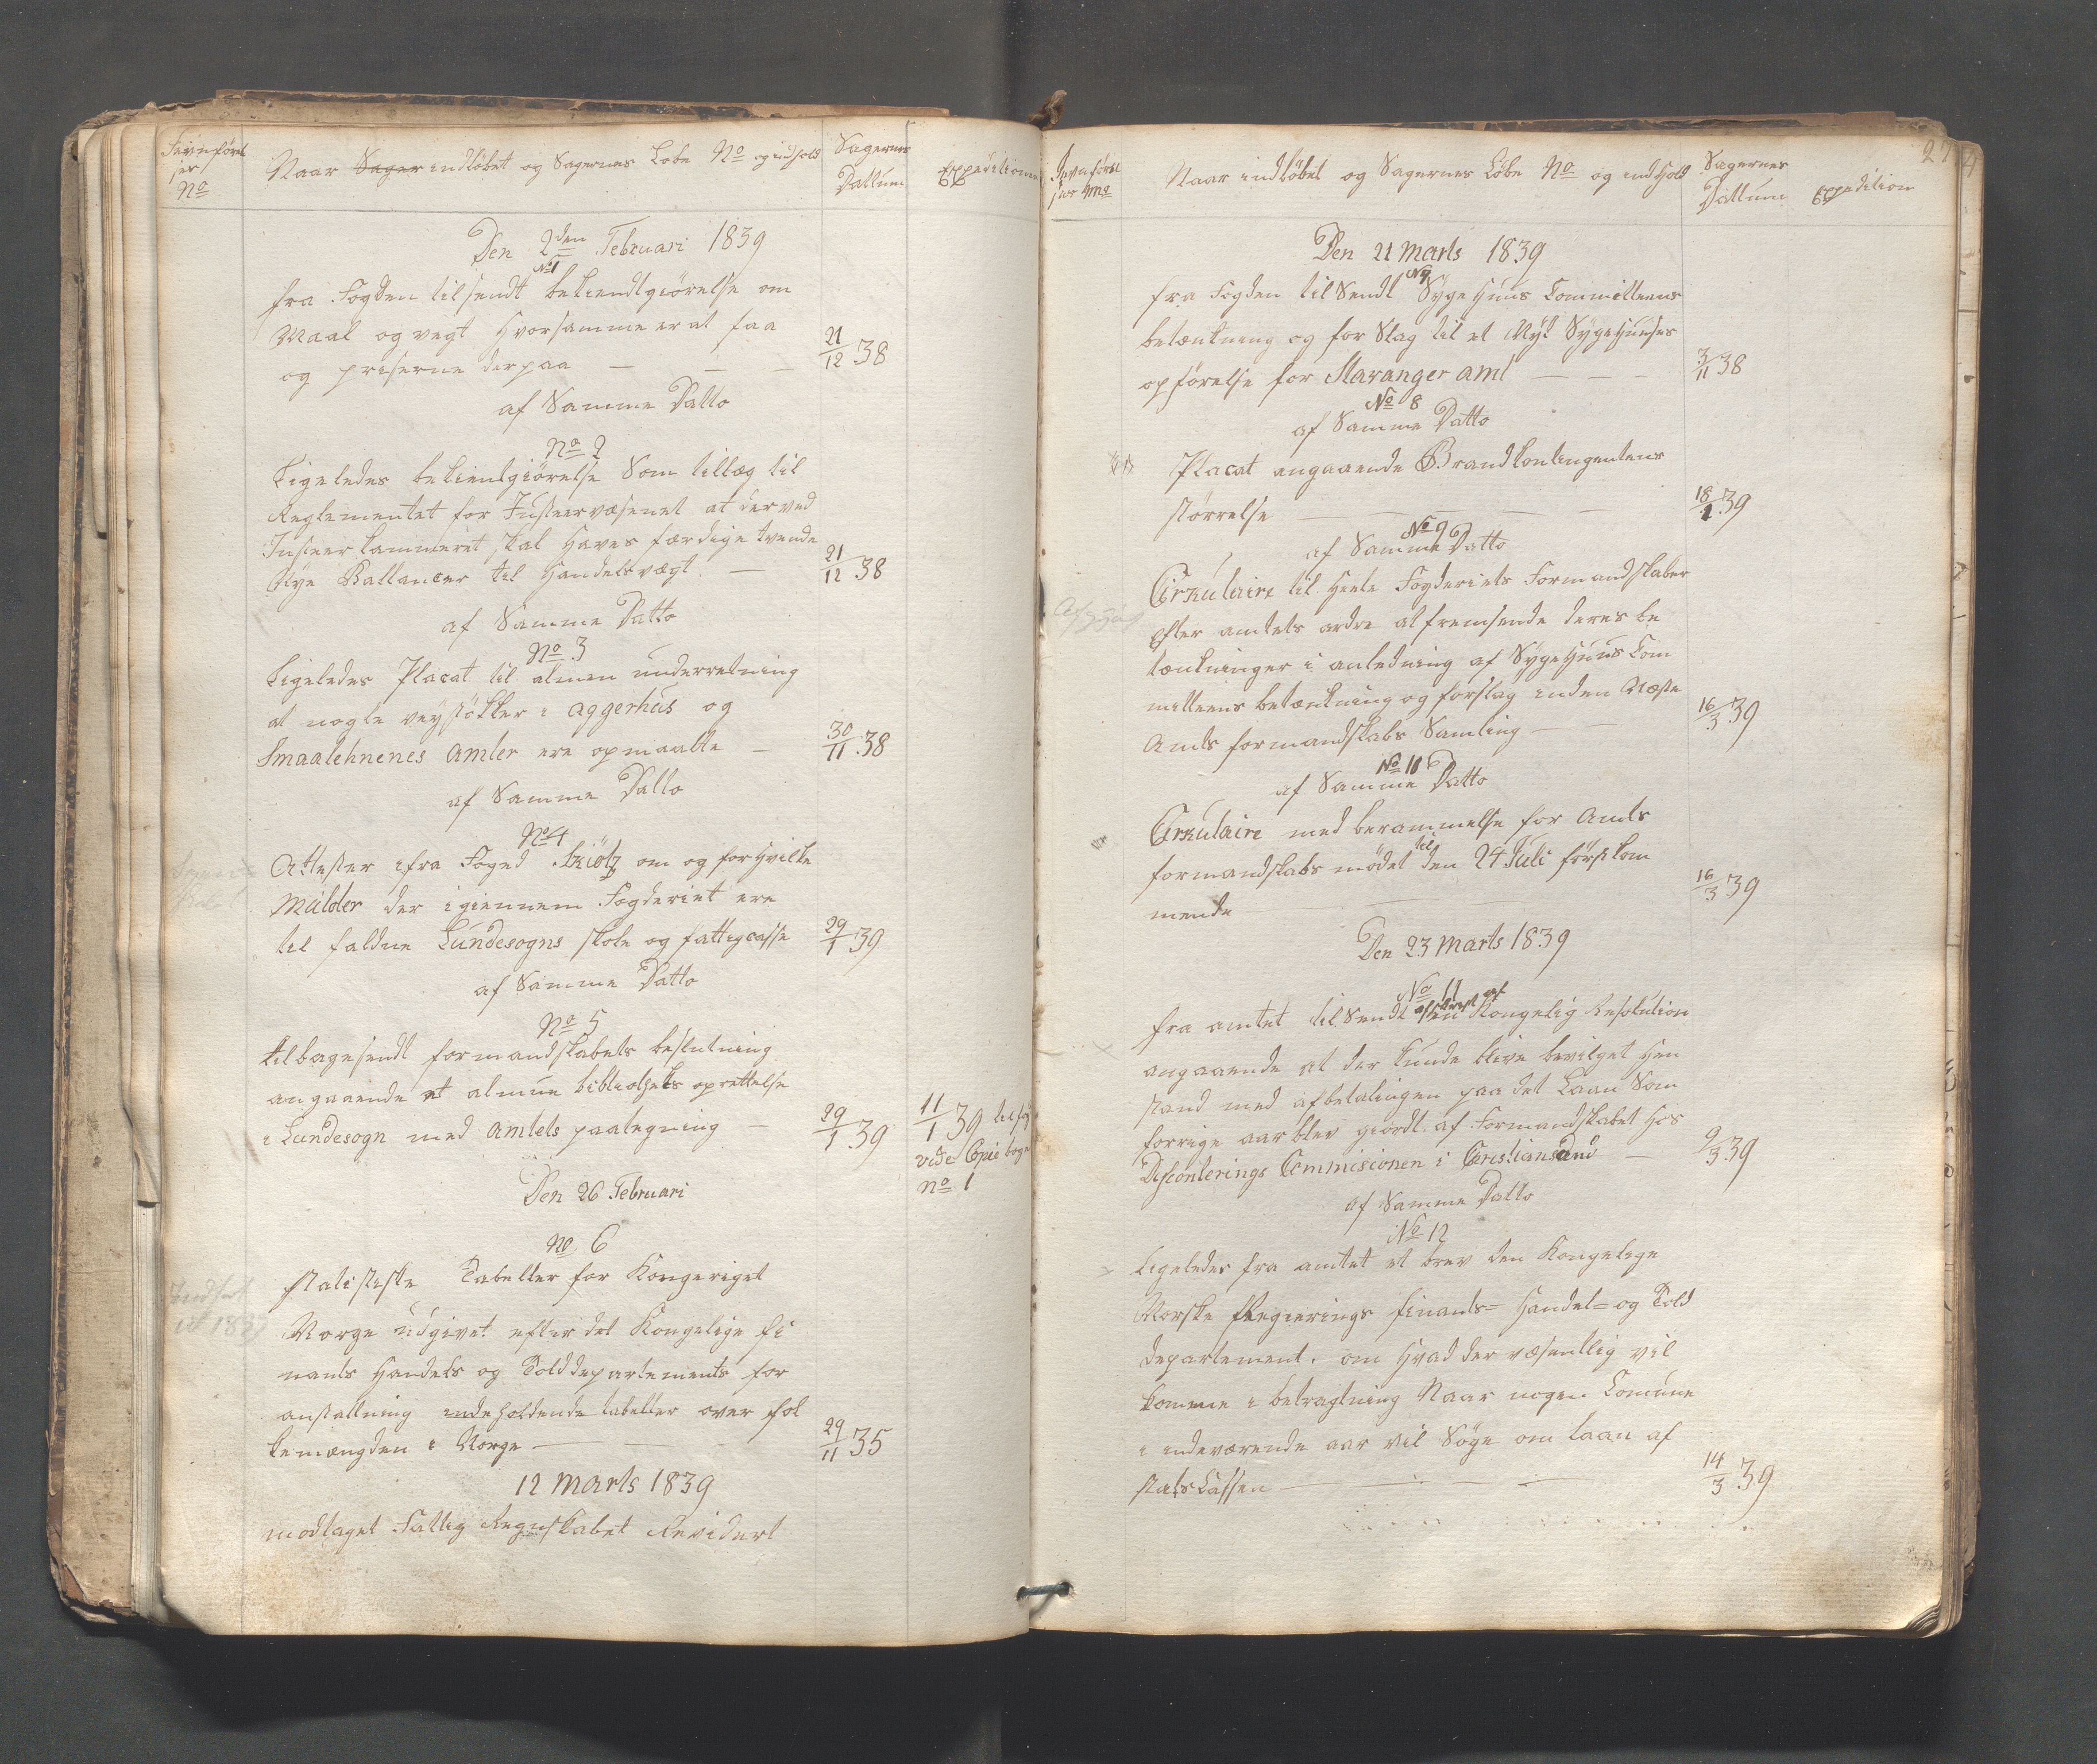 Jevnførel
ser
No
Naar Sager indløbet og Sagernes Løbe No og indhold
Sagernes
Dattum
Expeditionen
Den 2den Februari 1839
No 1
fra Fogden tilsendt bekiendtgiørelse om
Maal og vegt Hvorsamme er at faa
og priserne derpaa — — —
21/12 38
af Samme Datto
No 2
Ligeledes bekientgiørelse Som tillæg til
Reglementet for Justeervæsenet at derved
Justeerkammeret skal Haves færdige tvende
Nye Ballancer til Handelsvægt —
21/12 38
af Samme Datto
No 3
Ligeledes Placat til almen underretning
at nogle veystökker i Aggerhus og
Smaalehnenes Amter ere opmaalte —
30/11 38
af Samme Datto
No 4
Attester ifra Foged Skiøtz om og for Hvilke
Mulder der igiennem Fogderiet ere
til faldne Lundesogns skole og fattigcasse
29/1 39
af Samme Datto
No 5
tilbagesendt formandskabets beslutning
angaaende et almue bibliotheks oprettelse
i Lundesogn med Amtets paategning —
29/1 39
11/1 39
vide Copie bogen
no 1
Den 26 Februari
No 6
statistiske Tabeller for Kongeriget
Norge udgivet efter det Kongelige fi
nants Handels og Told departements for
anstaltning indeholdende tabeller over fol
kemængden i Norge —
29/11 35
12 Marts 1839
modtaget Fattig Regnskabet Revidert
27
Jevnførel
ser No
Naar indløbet og Sagernes Løbe No og indhold
Sagernes
Dattum
Expedition
Den 21 Marts 1839
No 7
fra Fogden tilsendt Sygehuus Committeens
betænkning og for Slag til et Nyt Sygehuuses
opførelse for Stavanger amt — — —
3/11 38
No 8
af Samme Datto
Placat angaaende Brandkontingentens
størrelse — — — —
18/1 39
No 9
af Samme Datto
Cirkulaire til Heele Fogderiets Formandskaber
efter amtets ordre at fremsende deres be
tænkninger i anledning af Sygehuus Com
mitteens betænkning og forslag inden Næste
Amts formandskabs Samling —
16/3 39
No 10
af Samme Datto
Cirkulaire med berammelse for Amts
formandskabs mødet til den 24 Juli førstkom
mende —
16/3 39
Den 23 Marts 1839
No 11
fra amtet tilsendt Kongelig Resolution
angaaende at der kunde blive bevilget Hen
stand med afbetalingen paa det Laan Som
forrige aar blev giordt af Formandskabet Hos
Disconterings Commisionen i Cristiansand —
9/3 39
af Samme Datto
No 12
Ligeledes fra amtet et brev den Kongelige
Norske Regierings finants= Handel= og Told
departement. om Hvad der væsentlig vil
komme i betragtning Naar nogen Comune
i indeværende aar vil Søge om laan af
statsCassen —
14/3 39